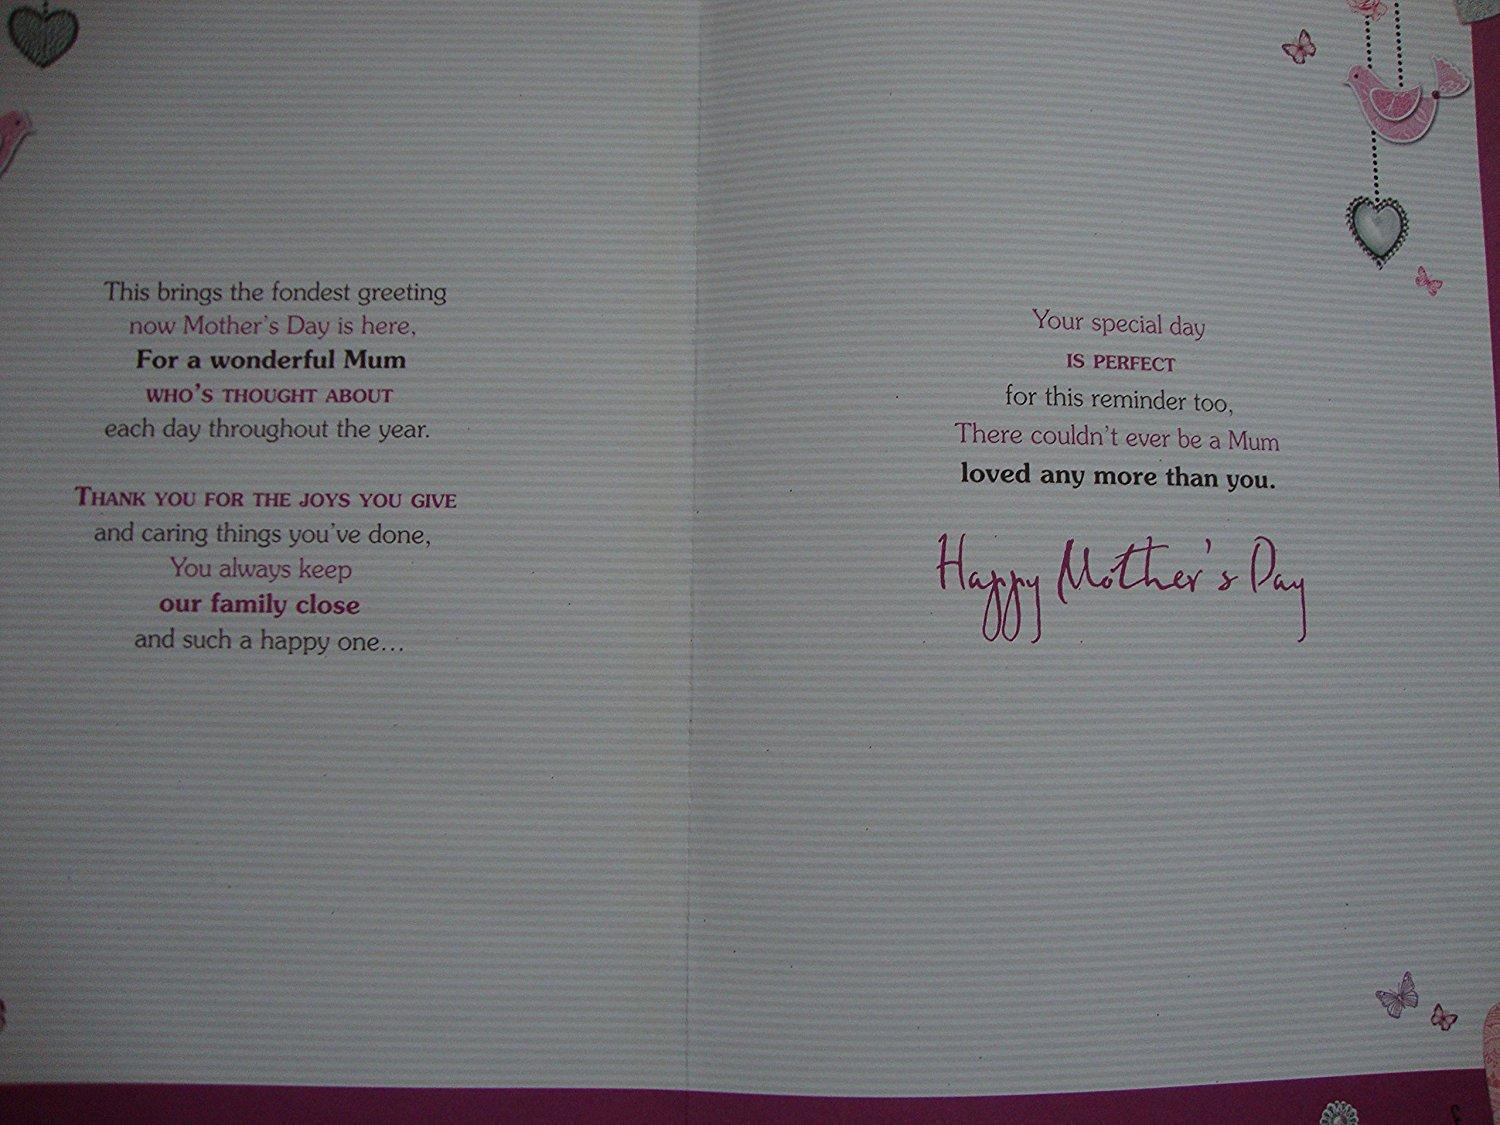 This brings the fondest greeting
now Mother's Day is here,
For a wonderful Mum
WHO'S THOUGHT ABOUT
each day throughout the year.
THANK YOU FOR THE JOYS YOU GIVE
and caring things you've done,
You always keep
our family close
and such a happy one...
Your special day
IS PERFECT
for this reminder too,
There couldn't ever be a Mum
loved any more than you.
Happy Mother's Day